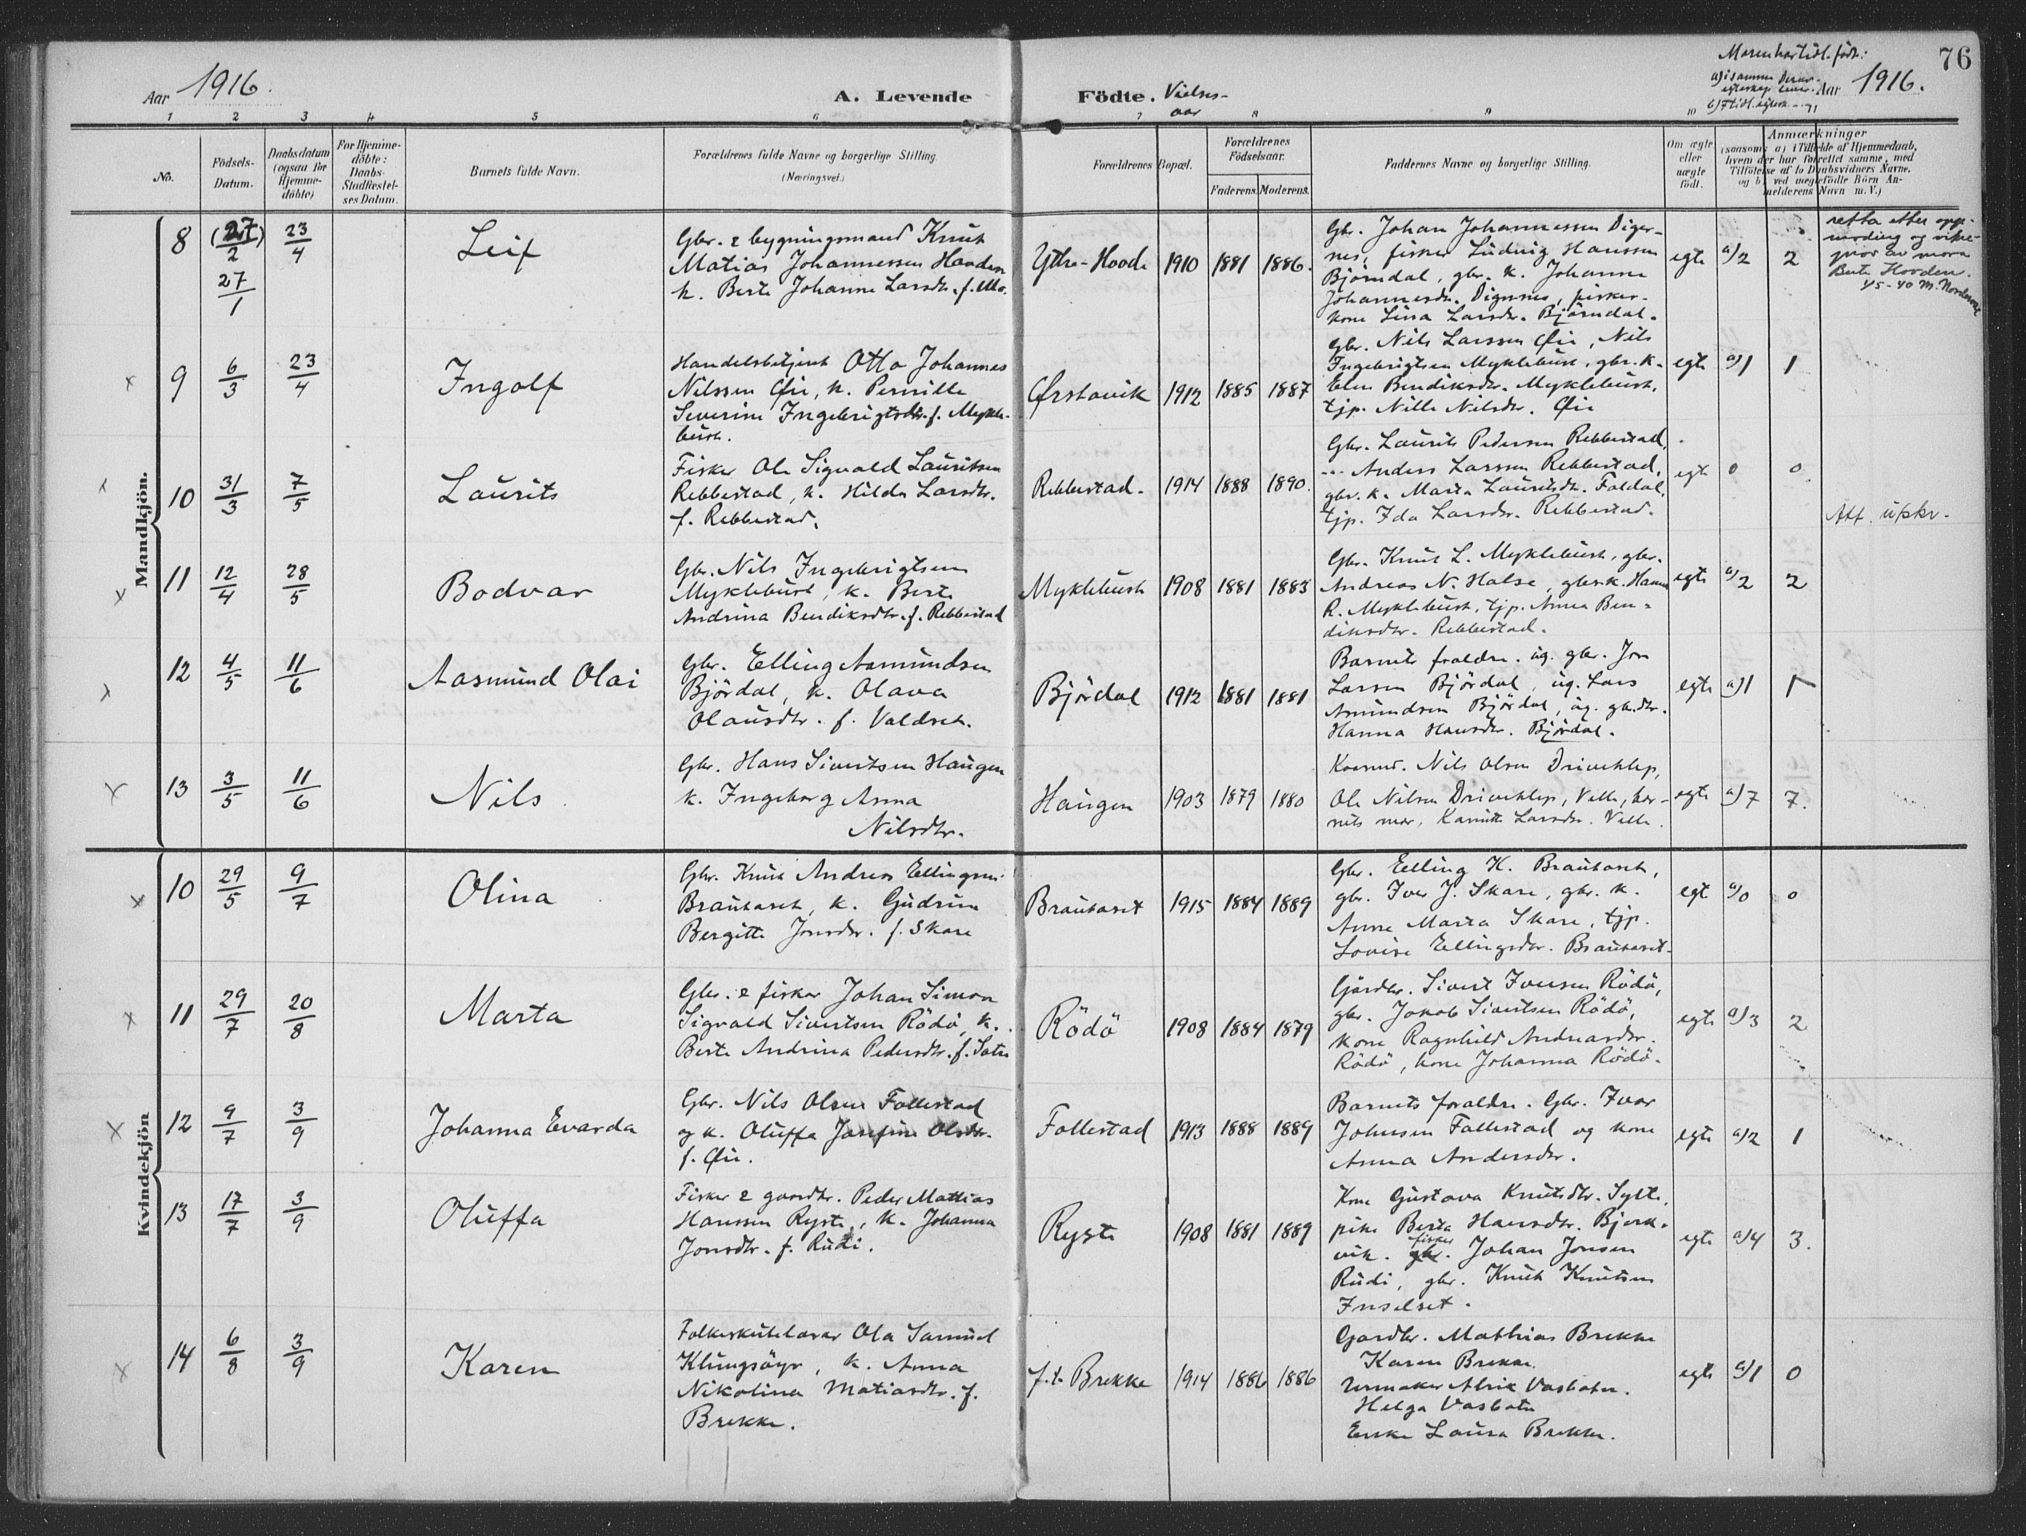 Aar 1916.
A. Levende
Födte.
Vielses-
aar
Moren har tidl. födt:
76
Aar 1916.
1 2 3 4 5 6 7 8 9 10 11
No.
Födsels-
Datum.
Daabsdatum
(ogsaa for
Hjemme-
döbte)
For Hjemme-
döbte:
Daabs-
Stadfestel-
ses Datum.
Barnets fulde Navn.
Forældrenes fulde Navne og borgerlige Stilling
(Næringsvei.)
Forældrenes Bopæl.
Forældrenes
Födselsaar.
Faderens. Moderens.
Faddernes Navne og borgerlige Stilling.
Om ægte
eller
uægte
födt.
Anmærkninger
(saasom: a) i Tilfælde af Hjemmedaab,
hvem der har forrettet samme, med
Tilföielse af to Daabsvidners Navne,
og b) ved uægtefödte Börn An-
melderens Navn m. V.)
Mandkjön.
8 (27/2) 23/4 Leif
27/1
Gbr. & bygningsmand Knut
Matias Johannessen Hovden
k. Berte Johanne Larsdtr. f. Mo.
Ytre-Hovde 1910 1881 1886.
Gbr. Johan Johannessen Diger-
nes, fisker Ludvig Hanssen
Björndal, gbr. k. Johanne
Johannesdtr. Digernes, fisker-
kone Lina Larsdtr. Björndal.
egte a/2 2
retta etter opp-
moding og vitne-
prov av mora
Berte Hovden.
9 6/3 23/4 Ingolf
Handelsbetjent Otto Johannes
Nilssen Öie, k. Pernille
Severine Ingebrigtsdtr. f. Mykle-
bust.
Ørstavik 1912 1885 1887
Gbr. Nils Larssen Öie, Nils
Ingebrigtsen Myklebust, gbr. k.
Elen Bendiksdtr. Myklebust,
tjp. Nille Nilsdtr. Öie
egte a/1 1
10 31/3 7/5 Laurits
Fisker Ole Sigvald Lauritsen
Rebbestad, k. Hilda Larsdtr.
f. Rebbestad.
Rebbestad. 1914 1888 1890.
Gbr. Laurits Pedersen Rebbestad,
Anders Larssen Rebbestad,
gbr. k. Marta Lauritsdtr. Foldal,
tjp. Ida Larsdtr. Rebbestad.
egt 0 0
Att. utskr.
11 12/4 28/5 Bodvar
Gbr. Nils Ingebrigtsen
Myklebust, k. Berte
Andrina Bendiksdtr. f. Rebbestad
Myklebust 1908 1881 1883
Gbr. Knut L. Myklebust, gbr.
Andreas N. Halse, gbrk. Hanna
R. Myklebust, tjp. Anna Ben-
diksdtr. Rebbestad.
egte a/2 2
12 4/5 11/6 Aasmund Olai
Gbr. Elling Aasmundsen
Björdal, k. Olava
Olausdtr. f. Valdset.
Björdal 1912 1881 1881
Barnets fraldre. ug. gbr. Jon
Larsen Björdal, ug. Lars
Asmundsen Björdal, ug. gb.dtr.
Hanna Hansdtr. Björdal.
egte a/1 1
13 3/5 11/6 Nils
Gbr. Hans Sivertsen Haugen
k. Ingeborg Anna
Nilsdtr.
Haugen 1903 1879 1880
Nils Olsen Driveklep,
Ole Nilsen Driveklep, Velle, bar-
nets mor, Kanutte Larsdtr. Velle.
egte a/7 7.
Kvindekjön
10 29/5 9/7 Olina
Gbr. Knut Andreas Ellingsen
Brautaset, k. Gudrun
Bergitte Jonsdtr. f. Skare
Brautaset 1915 1884 1889
Gbr. Elling K. Brautaset,
gbr. Iver J. Skare, gbr. k.
Anne Marta Skare, tjp.
Lovise Ellingsdtr. Brautaset.
egt a/0 0
11 29/7 20/8 Marta
Gbr. & fisker Johan Simon
Sigvald Sivertsen Rödö, k.
Berte Andrina Pedersdtr. f. Sætre
Rödö 1908 1884 1879
Gardbr. Sivert Iversen Rödö,
gbr. Jakob Sivertsen Rödö,
kone Ragnhild Andreasdtr.
Rödö, kone Johanna Rödö.
egte a/3 2
12 9/7 3/9 Johanna Evarda
Gbr. Nils Olsen Follestad
og k. Oluffa Josefine Olsdtr.
f. Öie.
Follestad 1913 1888 1889
Barnets foraldre. Gbr. Ivar
Johnsen Follestad og kone
Anna Andersdtr.
egte a/2 1
13 17/7 3/9 Oluffa
Fisker & gardbr. Peder Mathias
Hanssen Ryste, k. Johanna
Jonsdtr. f. Rudi.
Ryste 1908 1881 1889
Kone Gustava Knutsdtr. Sylte,
pike Berta Hansdtr. Bjork-
vik. fisker Johan Jonsen
Rudi, gbr. Knut Knutsen
Inselset.
egte a/4 3.
14 6/8 3/9 Karen
Folkeskulelærar Ola Samuel
Klungsöyr, k. Anna
Nikolina Matiasdtr. f.
Brekke.
f.t. Brekke 1914 1886 1886
Gardbr. Mathias Brekke
Karen Brekke.
Urmaker Alrik Vasbotn.
Helga Vasbotn
Enke Laura Brekke.
egte a/1 0